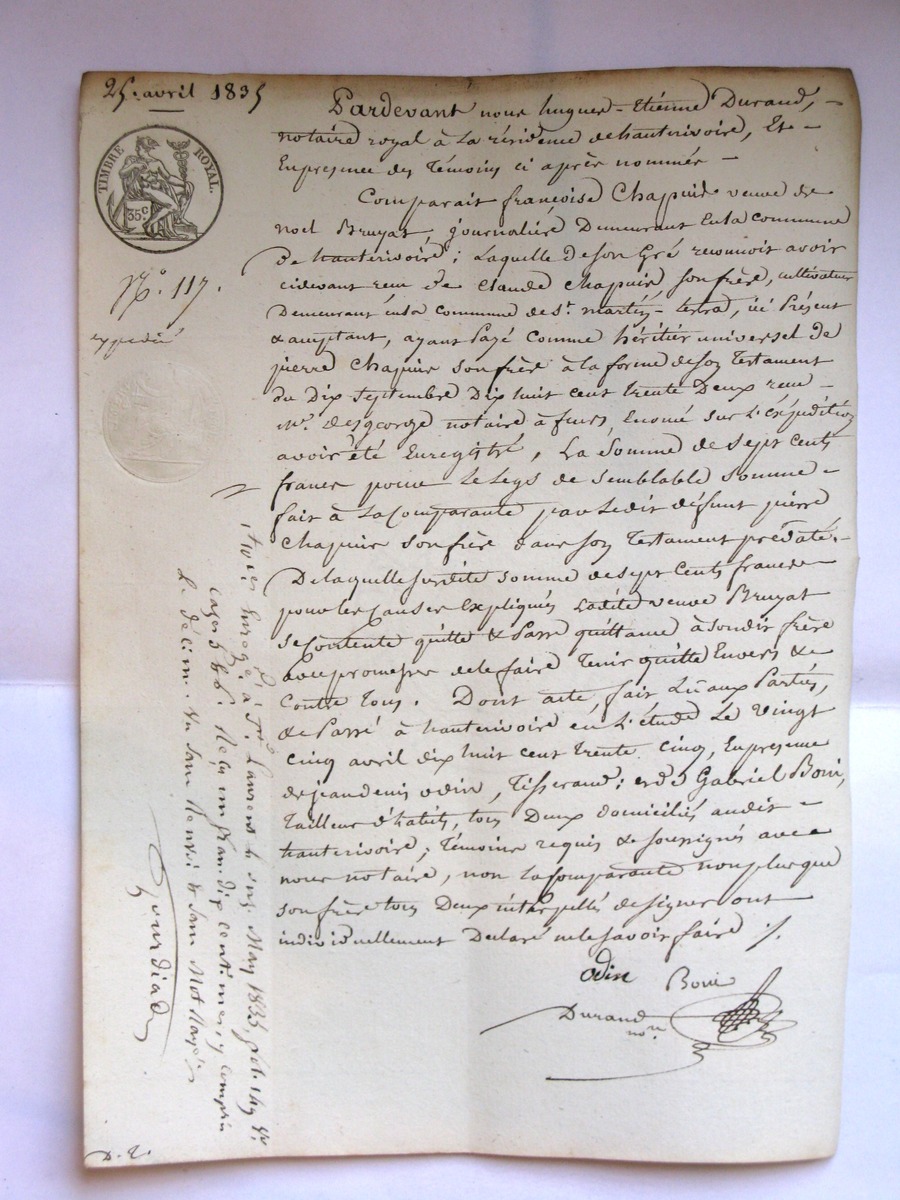 25. avril 1835
TIMBRE ROYAL.
35.c
N.o 117.
expédié
Pardevant nous hugues-Etiénne Durand,
notaire royal à la résidence dehauterivoire, Et
Enpresence des Témoins ci après nommés
Comparait françoise Chapuis veuve de
noel Bruyat journalière Demeurant Enla commune
de hauterivoire; Laquelle deson Gré reconnoit avoir
cidevant recu de claude Chapuis, son frère, cultivateur
Demeurant enla commune de St. martin-lestra, ici Présent
& acceptant, ayant Payé comme héritier universel de
pierre Chapuis son frère à la forme deson Testament
du Dix Septembre Dix huit cent trente Deux recu
Me. notaire à feurs, Enoncé sur L'éxpédition
avoir été Enregistré, La Somme de Sept cents
francs pour Le Legs de Semblable Somme
fait à La Comparante par Ledit défunt pierre
Chapuis son frère dans son Testament prédaté.
De laquelle susdite somme de Sept Cents francs
pour les causes Expliqués Ladite veuve Bruyat
se Contente quitte & Passe quittance à sondit frère
avec promesse de le faire Tenir quitte Envers &
Contre Tous. Dont acte, fait Lu aux Parties,
& Passé à hauterivoire en L'étude Le vingt
Cinq avril dix huit cent trente Cinq, En presence
de jean denis odin, Tisserand; et de Gabriel Boni,
Tailleur d'habits, tous Deux domiciliés audit
hauterivoire; Témoins requis & soussignés avec
nous notaire, non La comparante non plus que
son frère tous Deux interpellés de signer ont
individuellement Déclaré ne le savoir faire ./.
odin Boni
Durand
nore.
Enregé à St. Laurent le onze May 1835, fol. 149 vo.
cases 5 & 6. Reçu un franc dix centimes y compris
Le décime. Vu sans Renvoi & sans Mot Rayé
D. 2.